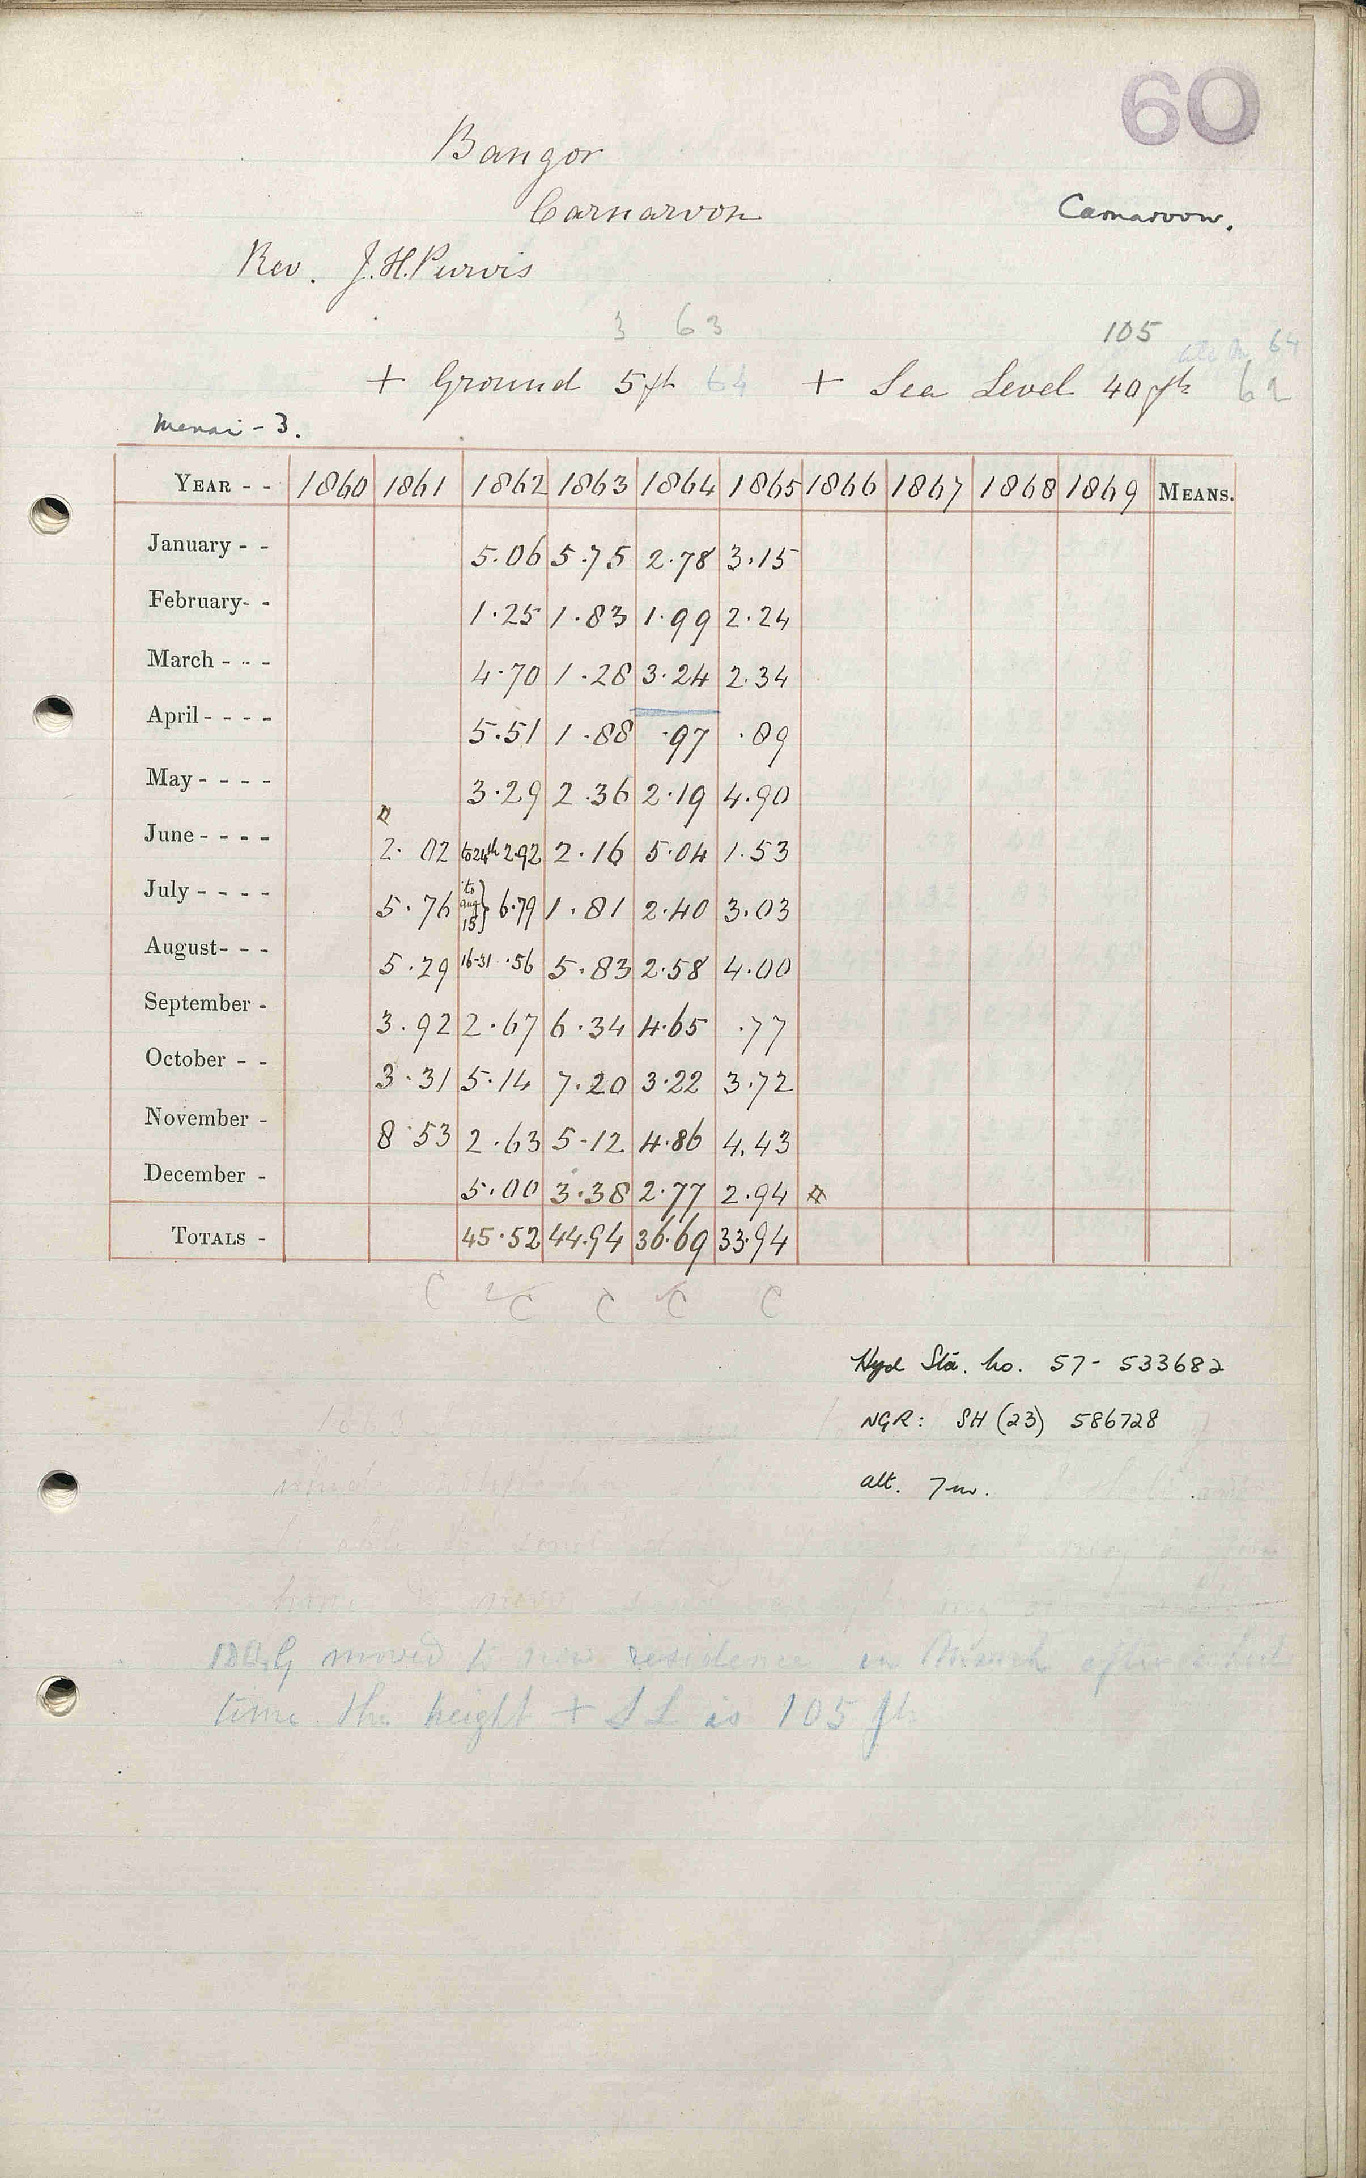 60
Bangor
Carnarvon
Carnarvon.
Rev. J.H. Purvis
3 63
105
64
+ Ground 5 ft 64 + Sea Level 40 ft 62
Menai - 3.
YEAR - - 1860 1861 1862 1863 1864 1865 1866 1867 1868 1869 MEANS.
January - - 5.06 5.75 2.78 3.15
February - - 1.25 1.83 1.99 2.24
March - - - 4.70 1.28 3.24 2.34
April - - - - 5.51 1.88 .97 .89
May - - - - 3.29 2.36 2.19 4.90
June - - - - 2.02 to 24th 2.92 2.16 5.04 1.53
July - - - - 5.76 to Aug 15} 6.79 1.81 2.40 3.03
August - - - 5.29 16-31 .56 5.83 2.58 4.00
September - 3.92 2.67 6.34 4.65 .77
October - - 3.31 5.14 7.20 3.22 3.72
November - 8.53 2.63 5.12 4.86 4.43
December - 5.00 3.38 2.77 2.94
TOTALS - 45.52 44.94 36.69 33.94
C C C C C
Hyd Sta. no. 57- 533682
NGR: SH (23) 586728
alt. 7m.
moved to new residence in March after
time the height + S L is 105 ft